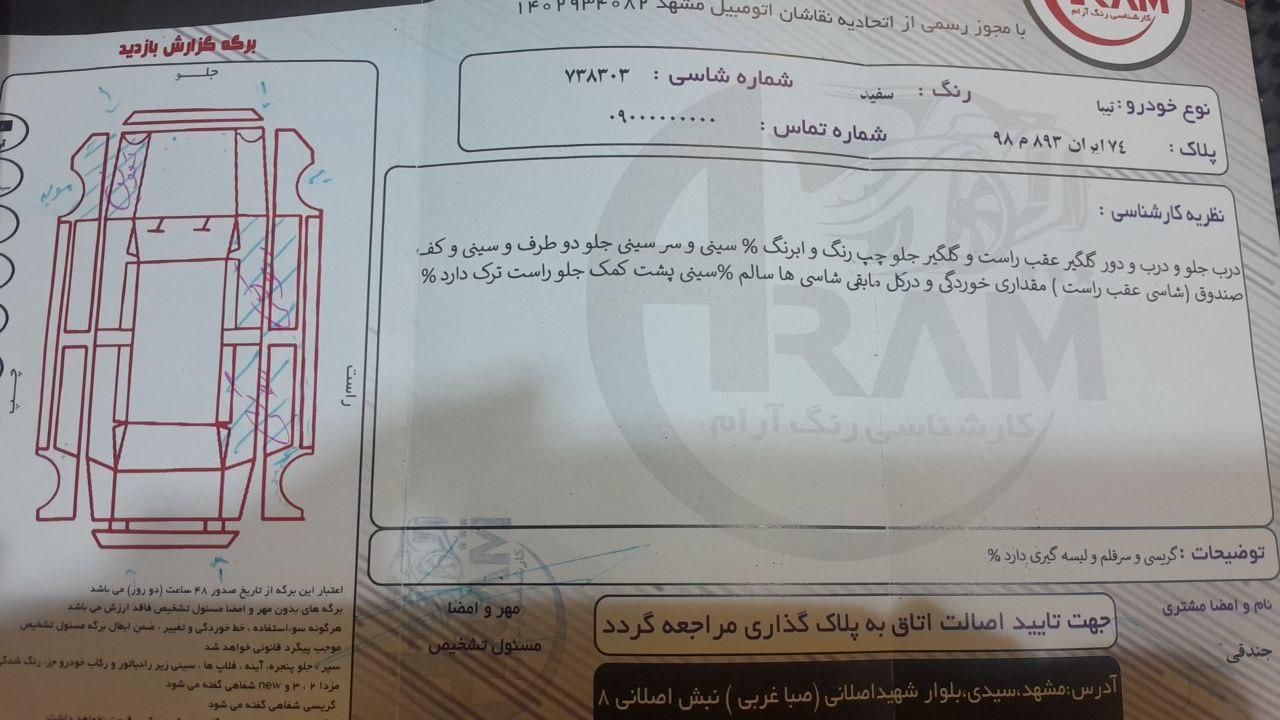 با مجوز رسمی از اتحادیه نقاشان اتومبیل مشهد ۱۴۰۲۹۳۴۰۸۲
ARAM
کارشناسی رنگ آرام
نوع خودرو : تیبا
رنگ : سفید
شماره شاسی : ۷۳۸۳۰۳
پلاک : ۷۴ ایران ۸۹۳ م ۹۸
شماره تماس : ۰۹۰۰۰۰۰۰۰۰۰
نظریه کارشناسی :
درب جلو و درب و دور گلگیر عقب راست و گلگیر جلو چپ رنگ و ابرنگ % سینی و سر سینی جلو دو طرف و سینی و کف
صندوق (شاسی عقب راست ) مقداری خوردگی و درکل مابقی شاسی ها سالم %سینی پشت کمک جلو راست ترک دارد %
ARAM
کارشناسی رنگ آرام
توضیحات : گریسی و سرقلم و لیسه گیری دارد %
نام و امضا مشتری
جندقی
جهت تایید اصالت اتاق به پلاک گذاری مراجعه گردد
مهر و امضا
مسئول تشخیص
آدرس:مشهد،سیدی،بلوار شهیداصلانی (صبا غربی ) نبش اصلانی ۸
برگه گزارش بازدید
جلو
راست
چپ
اعتبار این برگه از تاریخ صدور ۴۸ ساعت (دو روز) می باشد
برگه های بدون مهر و امضا مسئول تشخیص فاقد ارزش می باشد
هرگونه سو،استفاده ، خط خوردگی و تغییر ، ضمن ابطال برگه مسئول تشخیص
موجب پیگرد قانونی خواهد شد
سپر ، جلو پنجره، آینه ، فلاپ ها ، سینی زیر رادیاتور و رکاب خودرو جز، رنگ شدگی
مزدا ۲ ، ۳ و new شفاهی گفته می شود
گریسی شفاهی گفته می شود